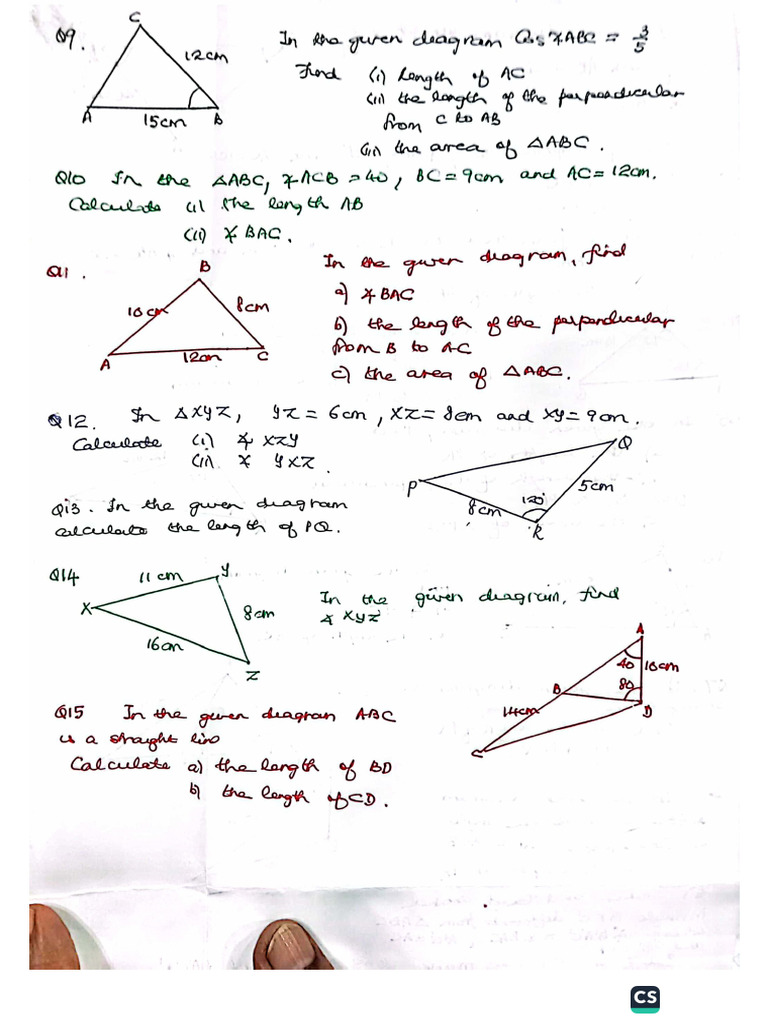 Q9.
C
12cm
A
15cm
B
In the given diagram Cos ∡ABC = 3/5
Find (i) Length of AC
(ii) the length of the perpendicular
from C to AB
(iii) the area of △ABC.
Q10 In the △ABC, ∡ACB = 40, BC = 9cm and AC = 12cm.
Calculate (i) the length AB
(ii) ∡ BAC.
Q11.
B
10cm
8cm
A
12cm
C
In the given diagram, find
a) ∡ BAC
b) the length of the perpendicular
from B to AC
c) the area of △ABC.
Q12. In △XYZ, YZ = 6cm, XZ = 8cm and XY = 9cm.
Calculate (i) ∡ XZY
(ii) ∡ YXZ.
Q
P
5cm
120°
8cm
R
Q13. In the given diagram
calculate the length of PQ.
Q14
11cm
Y
X
8cm
16cm
Z
In the given diagram, find
∡ XYZ
A
40
10cm
B
80
14cm
D
C
Q15 In the given diagram ABC
is a straight line
Calculate a) the length of BD
b) the length of CD.
CS